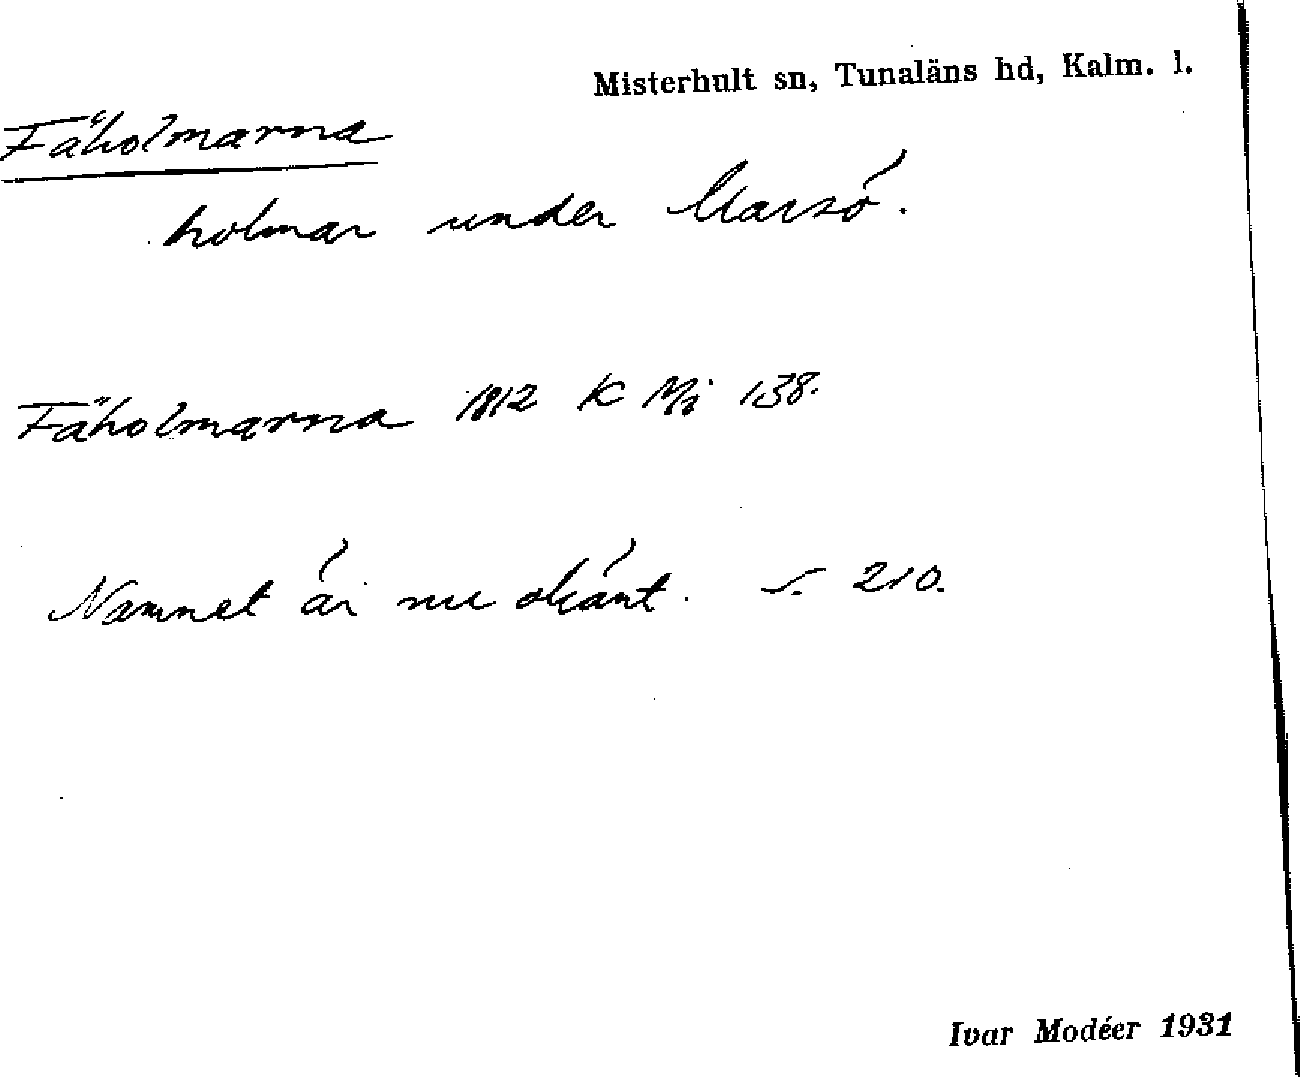 Misterhult sn, Tunaläns hd, Kalm. l.
Fäholmarna
holmar under Marsö.
Fäholmarna 1812 K Mi 138.
Namnet är nu okänt. S. 210.
Ivar Modéer 1931